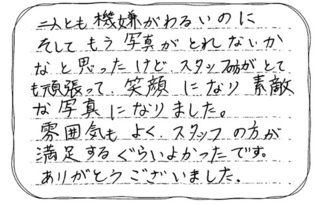 二人とも機嫌がわるいのに
そしてもう写真がとれないか
なと思ったけど、スタッフ方がとて
も頑張って、笑顔になり素敵
な写真になりました。
雰囲気もよく、スタッフの方が
満足するぐらいよかったです。
ありがとうございました。